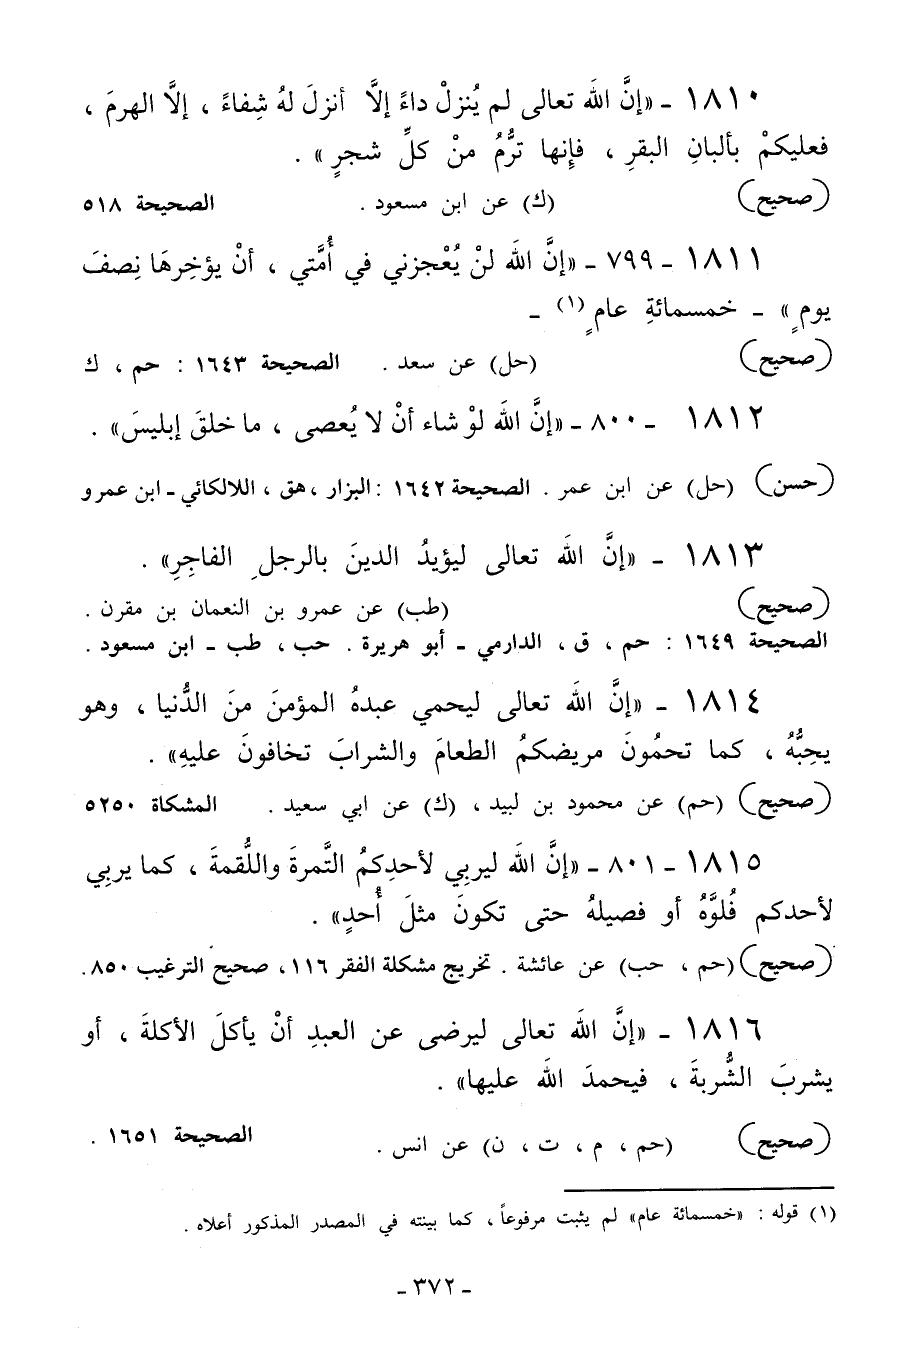 ١٨١٠ ـ «إنَّ اللهَ تعالى لم يُنزلْ داءً إلَّا أنزلَ لهُ شِفاءً ، إلَّا الهرمَ ،
فعليكمْ بألبانِ البقرِ ، فإنها ترُّمُ منْ كلِّ شجرٍ » .
(صحيح) (ك) عن ابن مسعود . الصحيحة ٥١٨
١٨١١ ـ ٧٩٩ ـ «إنَّ اللهَ لنْ يُعْجزني في أُمَّتي ، أنْ يؤخِرهَا نِصفَ
يومٍ » ـ خمسمائةِ عامٍ (١) ـ
(صحيح) (حل) عن سعد . الصحيحة ١٦٤٣ : حم ، ك
١٨١٢ ـ ٨٠٠ ـ «إنَّ اللهَ لوْ شاء أنْ لا يُعصى ، ما خلقَ إبليسَ» .
(حسن) (حل) عن ابن عمر . الصحيحة ١٦٤٢ : البزار ، هق ، اللالكائي ـ ابن عمرو
١٨١٣ ـ «إنَّ اللهَ تعالى ليؤيدُ الدينَ بالرجلِ الفاجِرِ» .
(صحيح) (طب) عن عمرو بن النعمان بن مقرن .
الصحيحة ١٦٤٩ : حم ، ق ، الدارمي ـ أبو هريرة . حب ، طب ـ ابن مسعود .
١٨١٤ ـ «إنَّ اللهَ تعالى ليحمي عبدهُ المؤمنَ منَ الدُّنيا ، وهو
يحِبُّهُ ، كما تحمُونَ مريضكمُ الطعامَ والشرابَ تخافونَ عليهِ» .
(صحيح) (حم) عن محمود بن لبيد ، (ك) عن ابي سعيد . المشكاة ٥٢٥٠
١٨١٥ ـ ٨٠١ ـ «إنَّ اللهَ ليربِي لأحدِكمُ التَّمرةَ واللُّقمةَ ، كما يربِي
لأحدكم فُلوَّهُ أو فصيلهُ حتى تكونَ مثلَ أُحدٍ» .
(صحيح) (حم ، حب) عن عائشة . تخريج مشكلة الفقر ١١٦ ، صحيح الترغيب ٨٥٠ .
١٨١٦ ـ «إنَّ اللهَ تعالى ليرضى عن العبدِ أنْ يأكلَ الأكلةَ ، أو
يشربَ الشُّربةَ ، فيحمدَ اللهَ عليها» .
(صحيح) (حم ، م ، ت ، ن) عن انس . الصحيحة ١٦٥١ .
(١) قوله : «خمسمائة عام» لم يثبت مرفوعاً ، كما بينته في المصدر المذكور أعلاه .
ـ ٣٧٢ ـ